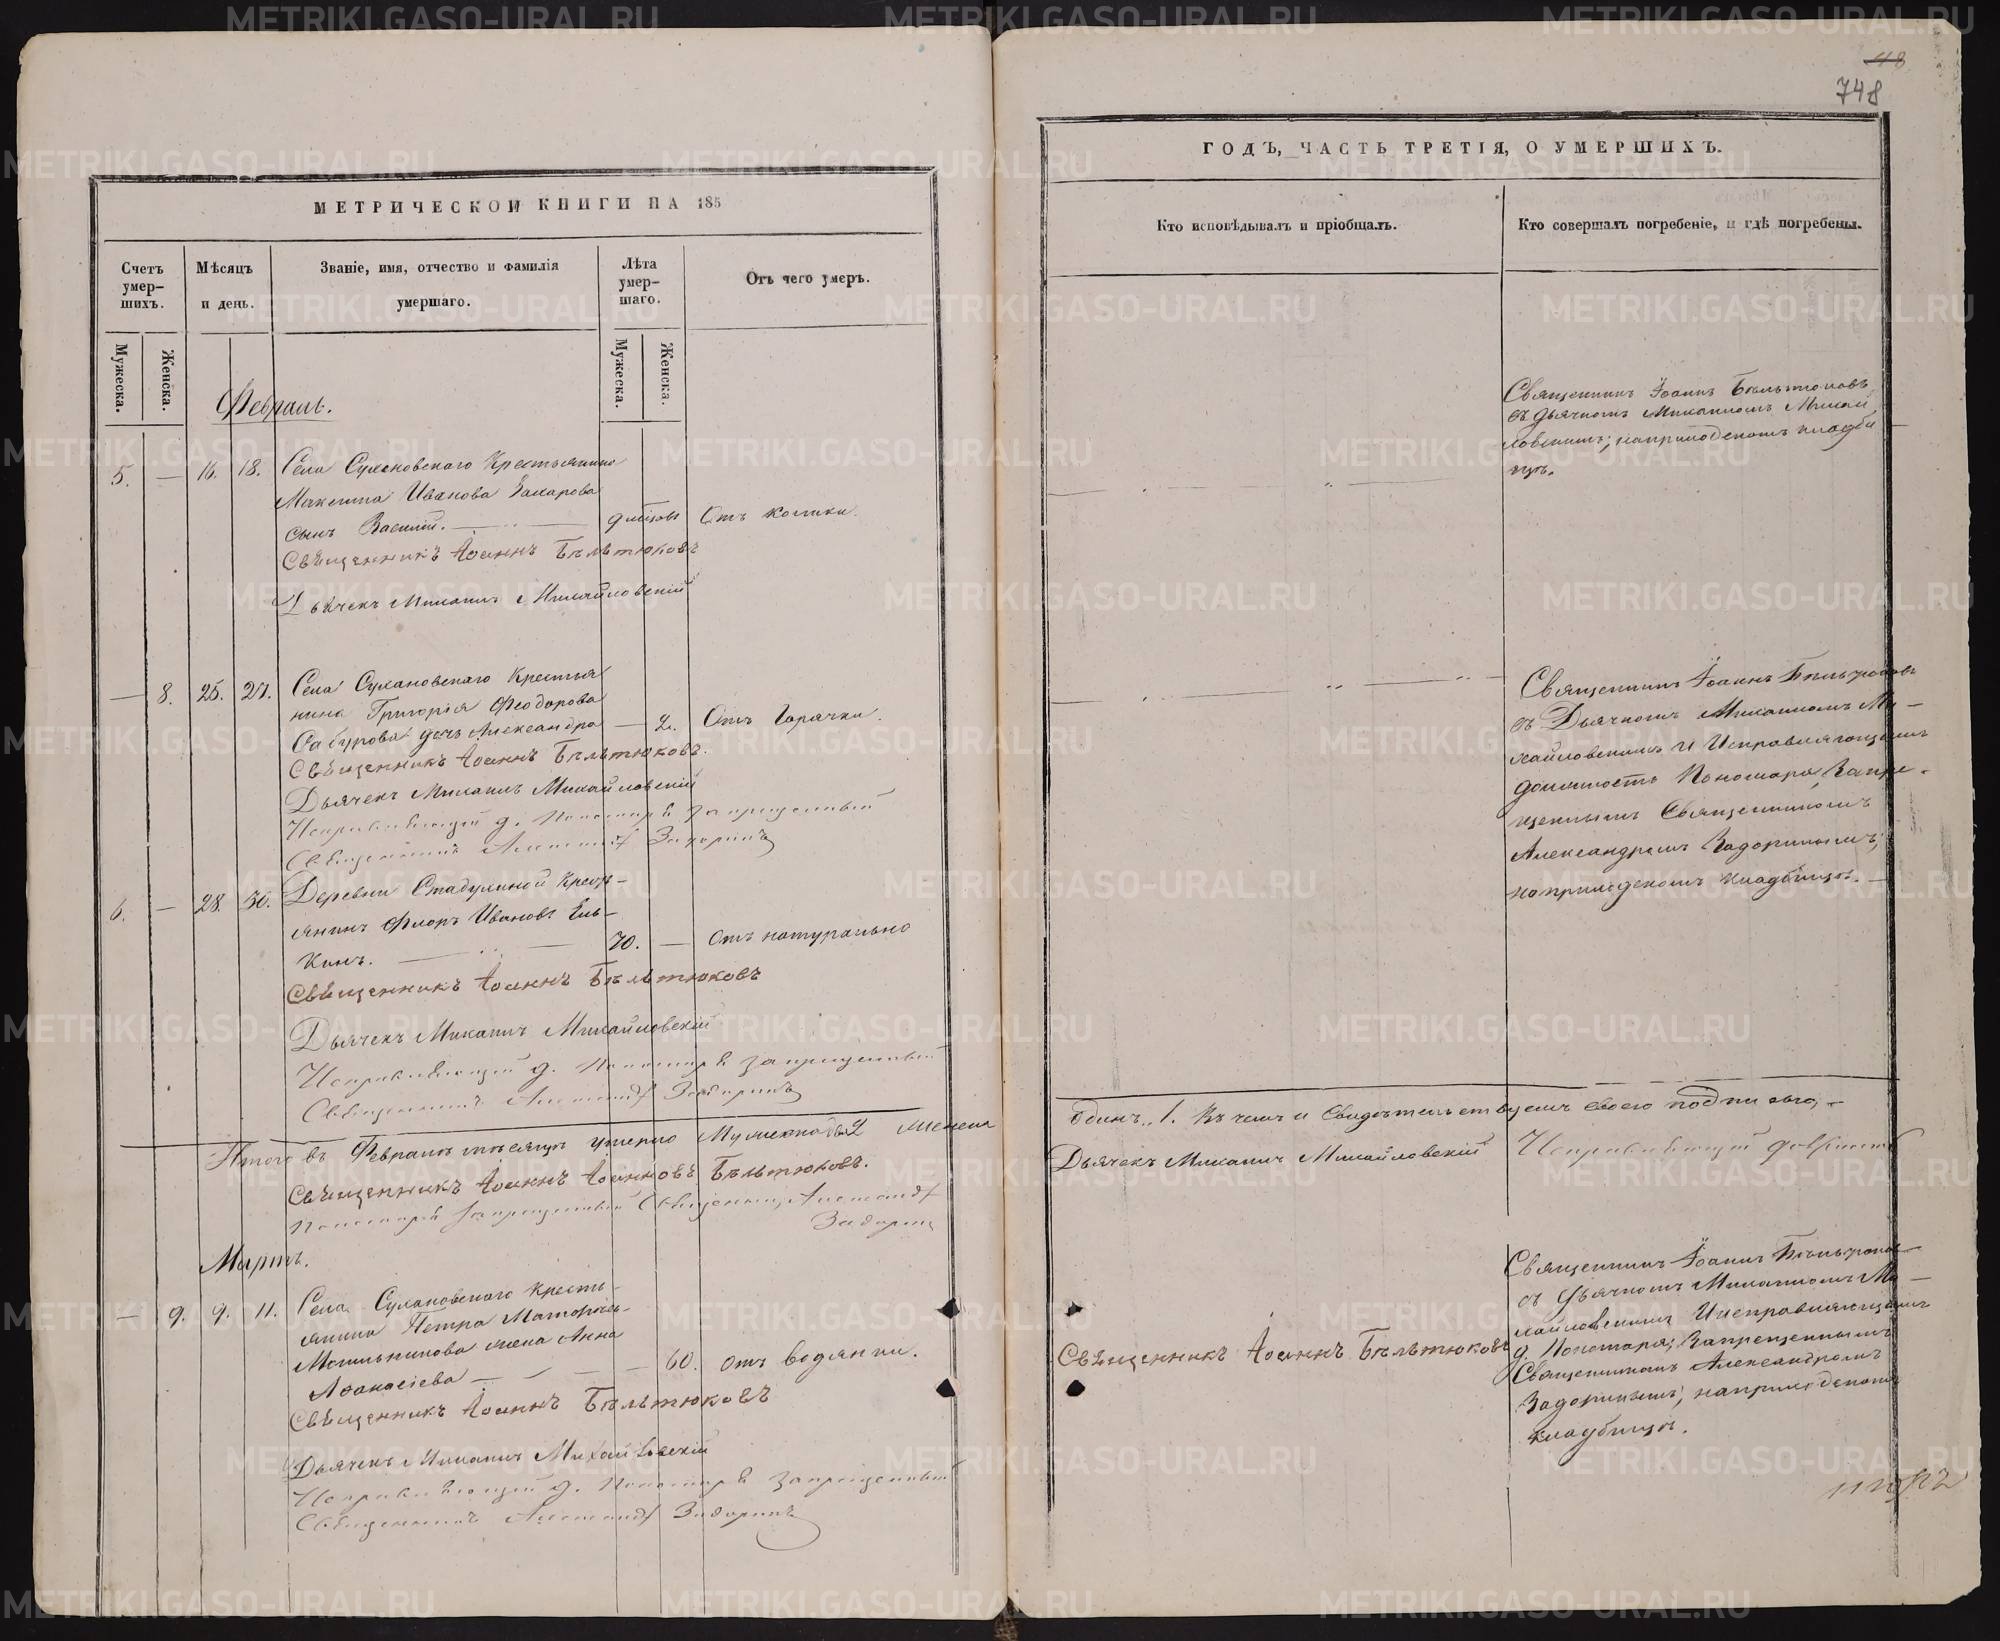 МЕТРИЧЕСКОЙ КНИГИ НА 185
Счетъ умер-шихъ.
Мужеска.
Женска.
Мѣсяцъ и день.
Званіе, имя, отчество и фамилія умершаго.
Лѣта умер-шаго.
Мужеска.
Женска.
Отъ чего умеръ.
Февраль.
5. — 16. 18. Села Сухановскаго Крестьянина
Максима Иванова Захарова
сынъ Василій. — Отъ колики.
Священникъ Іоаннъ Бѣльтюковъ
Дьячекъ Михайловскій
— 8. 25. 27. Села Сухановскаго Крестья
нина Григорія Феодорова
Сабурова дочь Александра — 2. Отъ Горячки.
Священникъ Іоаннъ Бѣльтюковъ.
Дьячекъ Михайловскій
Исправляющій д. Пономаря запрещенный
Священникъ Александръ Задоринъ
6. — 28. 30. Деревни Стадухиной Крест-
янинъ Флоръ Ивановъ Ель-
кинъ. — 70. — Отъ натурально
Священникъ Іоаннъ Бѣльтюковъ
Дьячекъ Михайловскій
Исправляющій д. Пономаря запрещенный
Священникъ Александръ Задоринъ
Итого въ Февралѣ мѣсяцѣ умерло Мужеска два 2 женска
Священникъ Іоаннъ Іоанновъ Бѣльтюковъ.
Пономаря запрещенный Священникъ Александръ
Задоринъ
Мартъ.
— 9. 9. 11. Села Сухановскаго Кресть-
янина Петра
жена Анна
Аѳанасіева — — 60. отъ водянки.
Священникъ Іоаннъ Бѣльтюковъ
Дьячекъ Михайловскій
Исправляющій д. Пономаря запрещенный
Священникъ Александръ Задоринъ
48
748
ГОДЪ, ЧАСТЬ ТРЕТІЯ, О УМЕРШИХЪ.
Кто исповѣдывалъ и пріобщалъ.
Кто совершалъ погребеніе, и гдѣ погребены.
Священникъ Іоаннъ Бѣльтюковъ
съ Дьячкомъ Михай
ловскимъ; на приходскомъ кладби
щѣ.
Священникъ Іоаннъ Бѣльтюковъ
съ Дьячкомъ Ми-
хайловскимъ и Исправляющимъ
должность Пономаря, Запре-
щеннымъ Священникомъ
Александромъ Задоринымъ;
на приходскомъ кладбищѣ. —
одинъ. 1. Въ чемъ и Свидѣтельствуемъ своего подписью; —
Дьячекъ Михайловскій Исправляющій должность
Священникъ Іоаннъ Бѣльтюковъ
Священникъ Іоаннъ Бѣльтюковъ
съ Дьячкомъ Ми-
хайловскимъ Исправляющимъ
д. Пономаря; Запрещеннымъ
Священникомъ Александромъ
Задоринымъ; на приходскомъ
кладбищѣ.
METRIKI.GASO-URAL.RU